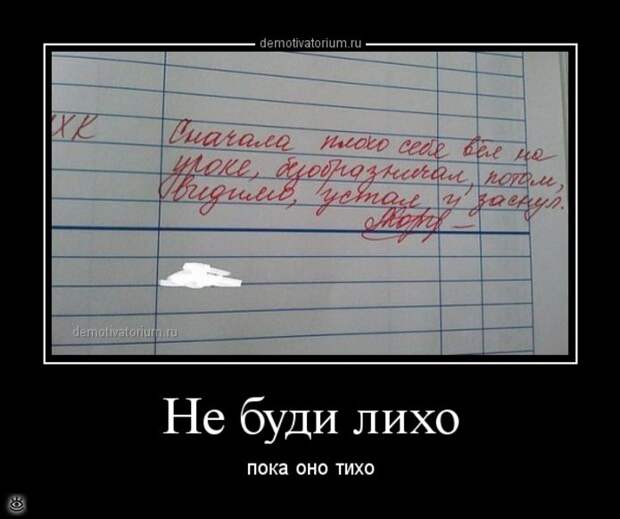 demotivatorium.ru
МХК Сначала плохо себя вёл на
уроке, безобразничал, потом,
видимо, устал, и заснул.
demotivatorium.ru
Не буди лихо
пока оно тихо